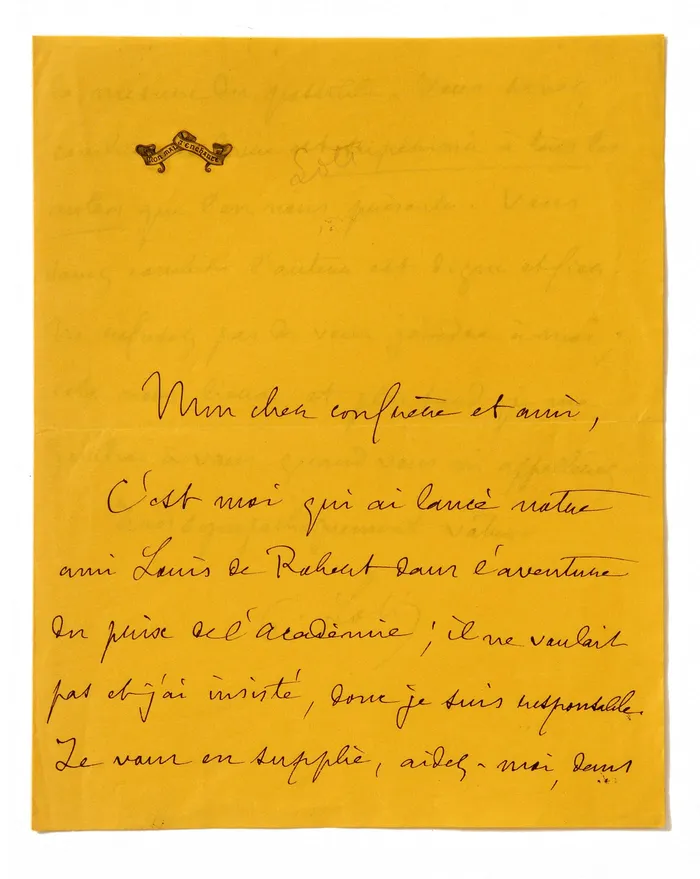 MON MAL J'ENCHANTE
Loti
Mon cher confrère et ami,
C'est moi qui ai lancé notre
ami Louis de Robert dans l'aventure
du prix de l'Académie ; il ne voulait
pas et j'ai insisté, donc je suis responsable.
Je vous en supplie, aidez-moi, dans